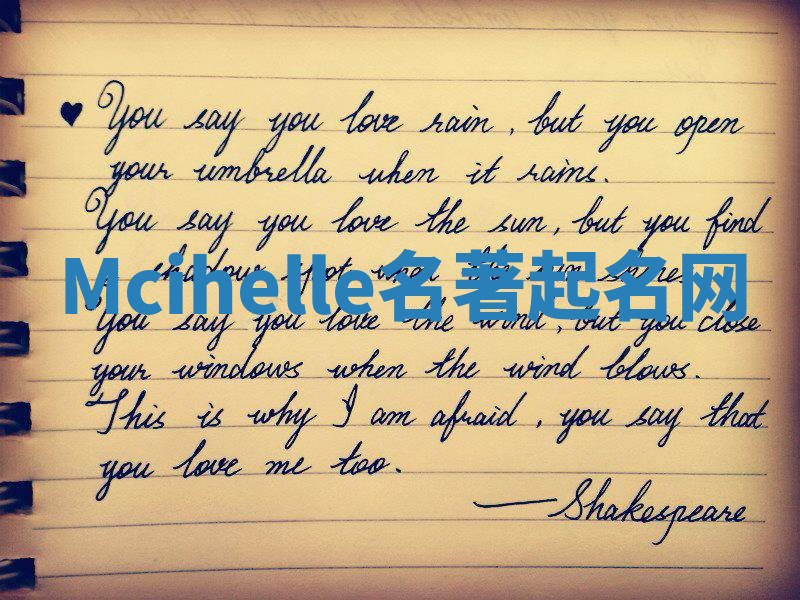 ♥ You say you love rain, but you open
your umbrella when it rains.
You say you love the sun, but you find
a shadow spot when the sun shines.
Mcihelle名著起名网
You say you love the wind, but you close
your windows when the wind blows.
This is why I am afraid, you say that
you love me too.
—Shakespeare